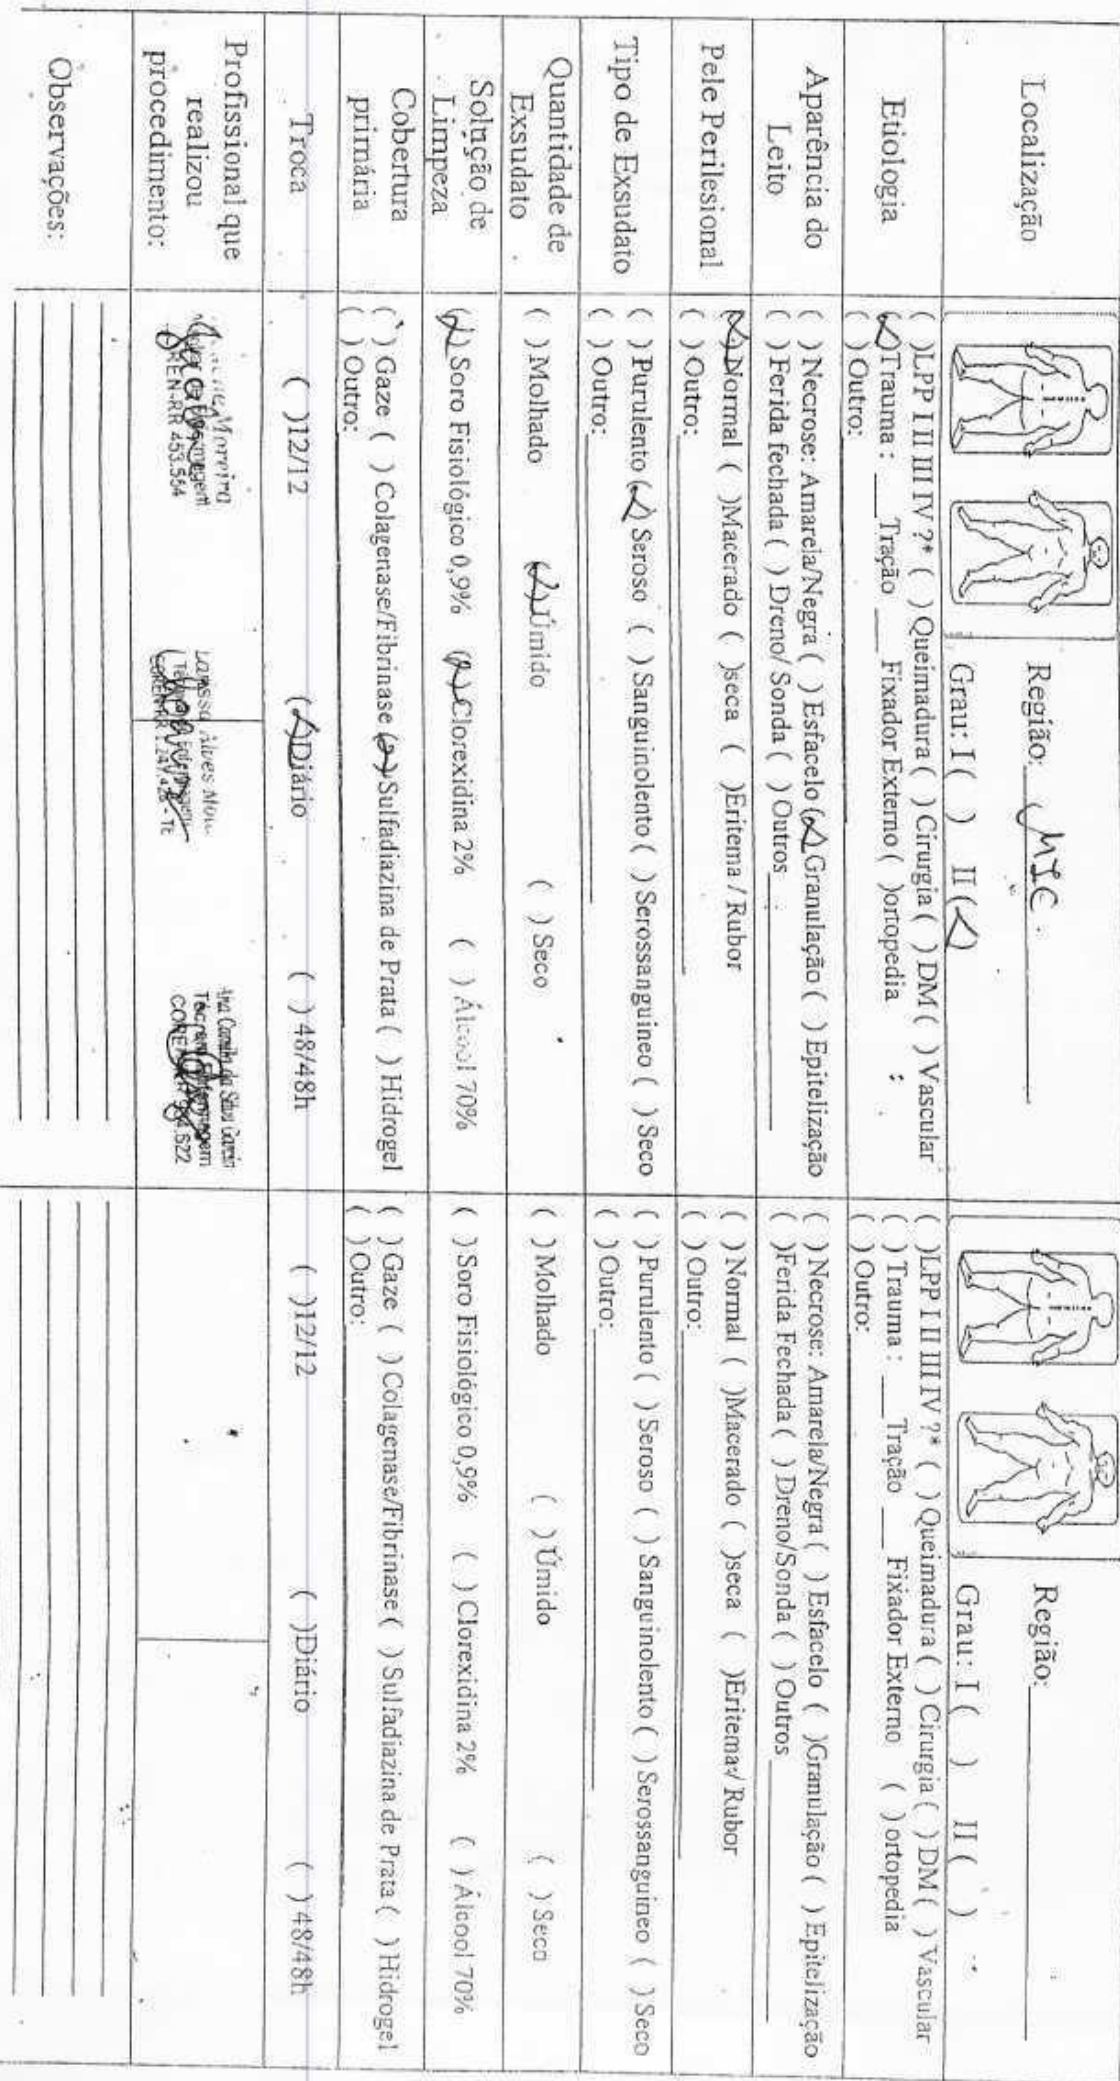 Localização
Região: MIC.
Grau: I ( ) II (X)
Região:
Grau: I ( ) II ( )
Etiologia
( )LPP I II III IV ?* ( )Queimadura ( )Cirurgia ( ) DM ( ) Vascular
(X)Trauma : ___Tração ___ Fixador Externo ( )ortopedia :
( ) Outro:
( )LPP I II III IV ?* ( )Queimadura ( )Cirurgia ( ) DM ( ) Vascular
( ) Trauma : ___Tração ___ Fixador Externo ( ) ortopedia
( ) Outro:
Aparência do
Leito
( ) Necrose: Amarela/Negra ( ) Esfacelo (X) Granulação ( ) Epitelização
( ) Ferida fechada ( ) Dreno/ Sonda ( ) Outros
( ) Necrose: Amarela/Negra ( ) Esfacelo ( )Granulação ( ) Epitelização
( )Ferida Fechada ( ) Dreno/Sonda ( ) Outros
Pele Perilesional
(X)Normal ( )Macerado ( )seca ( )Eritema / Rubor
( ) Outro:
( ) Normal ( )Macerado ( )seca ( )Eritema/ Rubor
( ) Outro:
Tipo de Exsudato
( ) Purulento (X) Seroso ( ) Sanguinolento ( ) Serossanguineo ( ) Seco
( ) Outro:
( ) Purulento ( ) Seroso ( ) Sanguinolento ( ) Serossanguineo ( ) Seco
( ) Outro:
Quantidade de
Exsudato
( ) Molhado (X)Úmido ( ) Seco
( ) Molhado ( ) Úmido ( ) Seco
Solução de
Limpeza
(X) Soro Fisiológico 0,9% (X)Clorexidina 2% ( ) Álcool 70%
( ) Soro Fisiológico 0,9% ( ) Clorexidina 2% ( ) Álcool 70%
Cobertura
primária
( ) Gaze ( ) Colagenase/Fibrinase (X)Sulfadiazina de Prata ( ) Hidrogel
( ) Outro:
( ) Gaze ( ) Colagenase/Fibrinase ( ) Sulfadiazina de Prata ( ) Hidrogel
( ) Outro:
Troca
( )12/12 (X)Diário ( ) 48/48h
( )12/12 ( )Diário ( ) 48/48h
Profissional que
realizou
procedimento:
Moreira
453.554
Larissa Alves
Ana Camila da Silva
Observações: